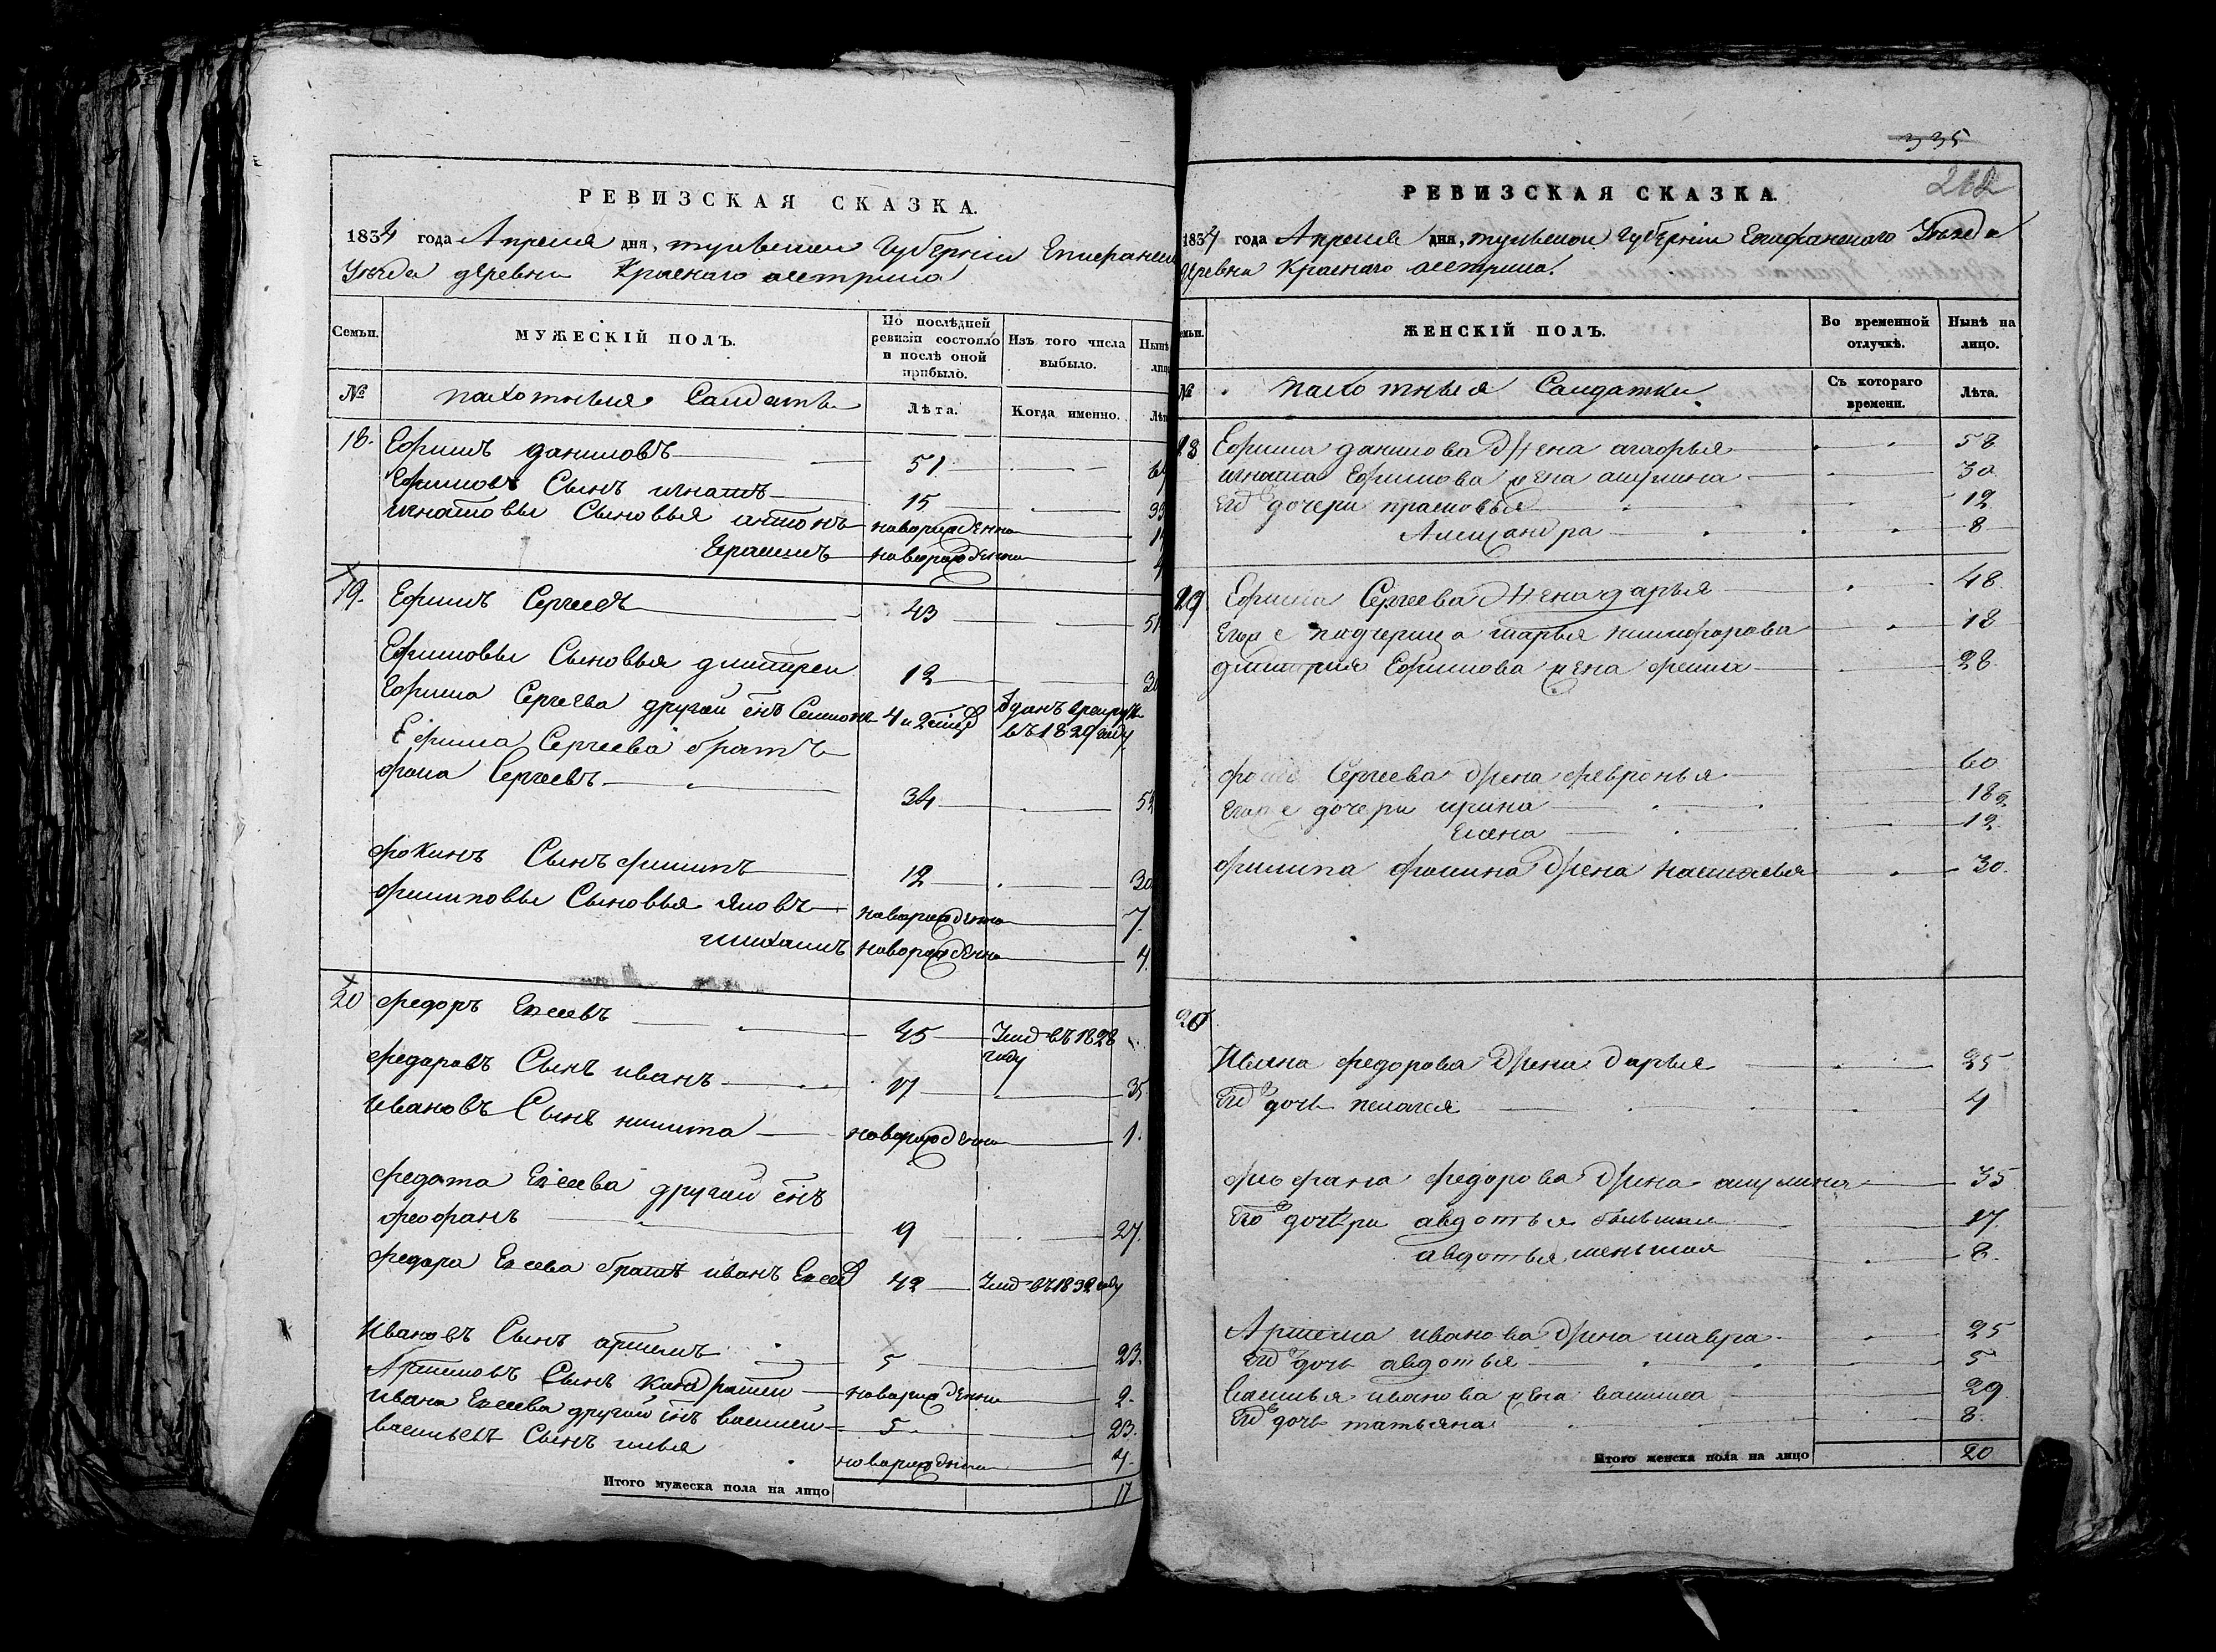 РЕВИЗСКАЯ СКАЗКА.
1834 года Апреля дня, тульской губерніи Епифанск
Уезда деревни Красного осетрика
Семьи.
МУЖЕСКІЙ ПОЛЪ.
По послѣдней ревизіи состояло и послѣ оной прибыло.
Изъ того числа выбыло.
Нынѣ
лицо
№
пахотныя Салдаты
Лѣта.
Когда именно.
Лѣт
18. Ефимъ даниловъ 51
Ефимовъ Сынъ игнатъ 15
игнатовы Сыновья антонъ новорожденны
Герасимъ новорожденны
19. Ефимъ Сергеевъ 43
Ефимовы Сыновья дмитреи 12
Ефима Сергеева другой снъ Семионъ 4 отданъ врекруты
въ 1829 году
Ефима Сергеева братъ
фока Сергеевъ 34
фокинъ Сынъ филипъ 12 30
филиповы Сыновья яковъ новорожденны 7.
михаилъ новорожденны 4.
20 федоръ Евсеевъ 45 Умер въ 1828
году
федоровъ Сынъ иванъ 17 35
Ивановъ Сынъ никита новорожденны 1.
федота Евсеева другой снъ
феофанъ 9 27.
федора Евсеева братъ иванъ Евсеев 42 Умер въ 1832 году
Ивановъ Сынъ артемъ 5 23.
Артемовъ Сынъ кандратеи новорожденны 2.
Ивана Евсеева другой снъ василеи 5 23.
васильевъ Сынъ илья новорожденны 4.
Итого мужеска пола на лицо 17
335
212
РЕВИЗСКАЯ СКАЗКА.
1834 года Апреля дня, тульской губерніи Епифанского Уезда
деревни Красного осетрика.
емьи.
ЖЕНСКІЙ ПОЛЪ.
Во временной отлучкѣ.
Нынѣ на лицо.
№
пахотныя Салдатки
Съ котораго времени.
Лѣта.
18 Ефима данилова жена агафья 58
игната Ефимова жена акулина 30
Его дочери прасковья 12
Александра 8
19 Ефима Сергеева жена дарья 48
Его же падчерица марья никифорова 18
дмитрия Ефимова жена фекла 28
фоки Сергеева жена февронья 60
Его же дочери ирина 18
Елена 12
филипа фокина жена настасья 30.
20
Ивана федорова жена дарья 25
Его дочь пелагея 4
феофана федорова жена акулина 35
Его дочери авдотья большая 17
авдотья меньшая 8.
Артема иванова жена мавра 25
Его дочь авдотья 5
Василья иванова жена василиса 29
Его дочь татьяна 8.
Итого женска пола на лицо 20